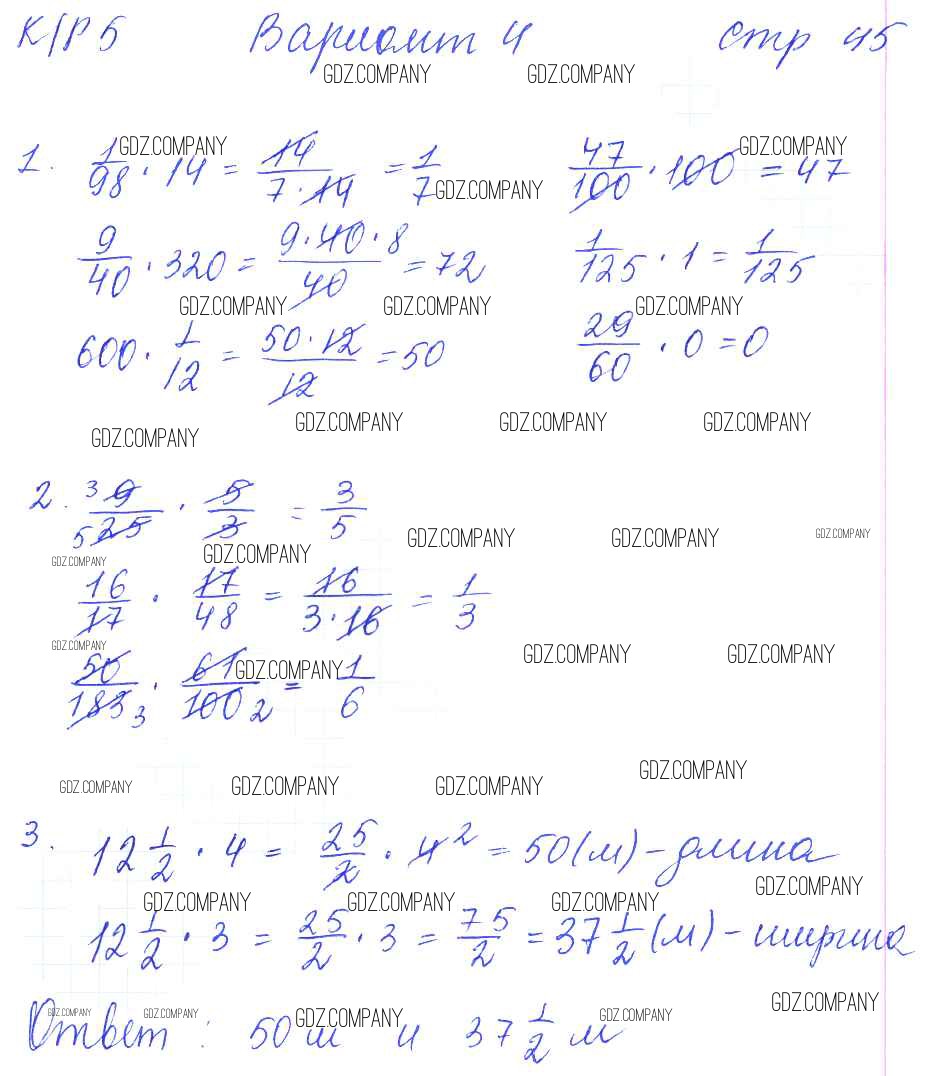 К/Р 5 Вариант 4 стр 45
GDZ.COMPANY GDZ.COMPANY
GDZ.COMPANY GDZ.COMPANY
1. 1/98 · 14 = 14/(7 · 14) = 1/7 47/100 · 100 = 47
GDZ.COMPANY
9/40 · 320 = (9 · 40 · 8)/40 = 72 1/125 · 1 = 1/125
GDZ.COMPANY GDZ.COMPANY GDZ.COMPANY
600 · 1/12 = (50 · 12)/12 = 50 29/60 · 0 = 0
GDZ.COMPANY GDZ.COMPANY GDZ.COMPANY GDZ.COMPANY
2. 3 9/5 25 · 5/3 = 3/5
GDZ.COMPANY GDZ.COMPANY GDZ.COMPANY GDZ.COMPANY GDZ.COMPANY
16/17 · 17/48 = 16/(3 · 16) = 1/3
GDZ.COMPANY GDZ.COMPANY GDZ.COMPANY
50/183 3 · 61/100 2 = 1/6
GDZ.COMPANY
GDZ.COMPANY GDZ.COMPANY GDZ.COMPANY GDZ.COMPANY
3. 12 1/2 · 4 = 25/2 · 4 2 = 50 (м) - длина
GDZ.COMPANY GDZ.COMPANY GDZ.COMPANY GDZ.COMPANY
12 1/2 · 3 = 25/2 · 3 = 75/2 = 37 1/2 (м) - ширина
GDZ.COMPANY GDZ.COMPANY GDZ.COMPANY GDZ.COMPANY GDZ.COMPANY
Ответ: 50 м и 37 1/2 м